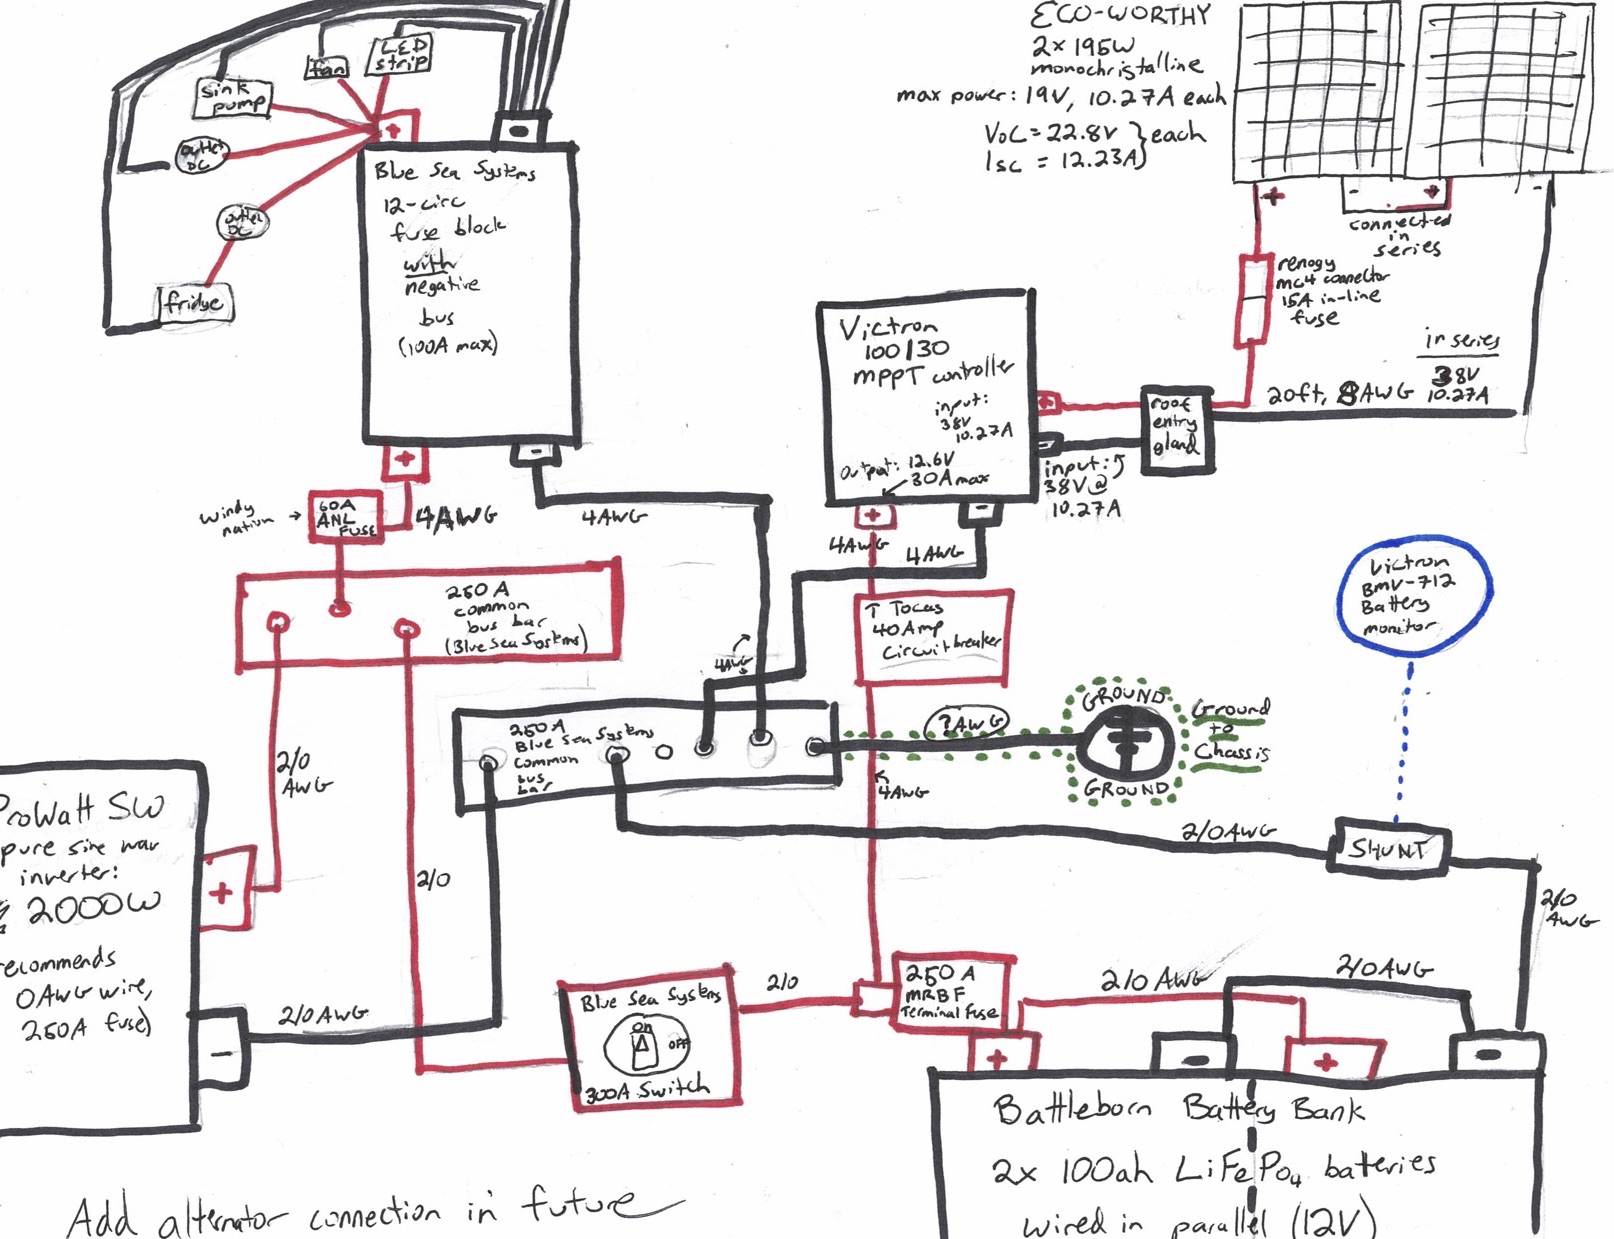 ECO-WORTHY
2x 195W
monochristalline
max power: 19V, 10.27A each
VoC = 22.8V } each
Isc = 12.23A
+
-
+
-
connected
in
series
renogy
MC4 connector
15A in-line
fuse
in series
38V
10.27A
20ft, 8AWG
roof
entry
gland
LED
strip
fan
sink
pump
outlet
DC
outlet
DC
fridge
+
-
Blue Sea Systems
12-circ
fuse block
with
negative
bus
(100A max)
+
-
windy
nation
60A
ANL
FUSE
4AWG
4AWG
Victron
100/30
MPPT controller
input:
38V
10.27A
output: 12.6V
30A max
+
-
+
-
input:
38V@
10.27A
4AWG
4AWG
Tocas
40Amp
Circuit breaker
Victron
BMV-712
Battery
monitor
250A
common
bus bar
(Blue Sea Systems)
4AWG
250A
Blue Sea Systems
common
bus
bar
?AWG
GROUND
GROUND
Ground
to
Chassis
4AWG
2/0AWG
SHUNT
2/0
AWG
2/0
AWG
2/0
ProWatt SW
pure sine wav
inverter:
2000W
recommends
0AWG wire,
250A fuse)
+
-
2/0AWG
Blue Sea Systems
ON
OFF
300A Switch
2/0
250A
MRBF
Terminal Fuse
2/0AWG
2/0AWG
+
-
+
-
Battleborn Battery Bank
2x 100ah LiFePo4 batteries
wired in parallel (12V)
Add alternator connection in future